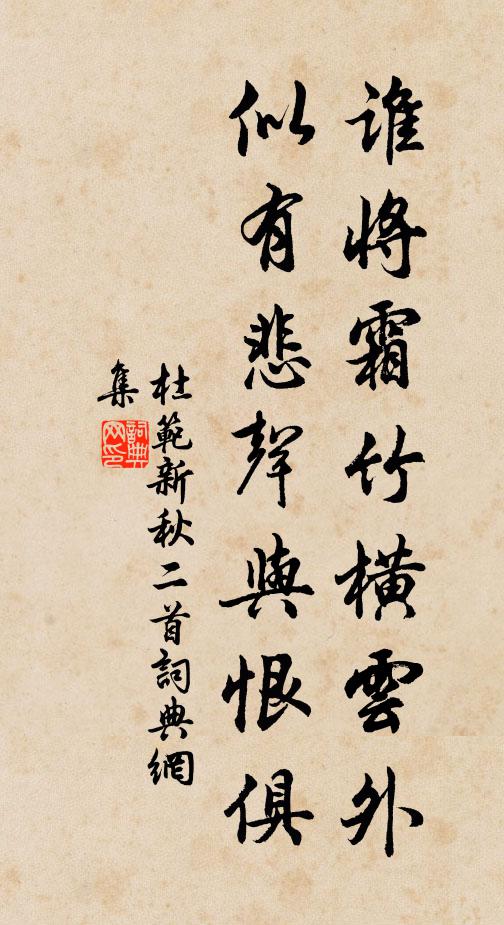 誰將霜竹橫雲外
似有悲聲與恨俱
杜範新秋二首詞典網
集
詞典
网印